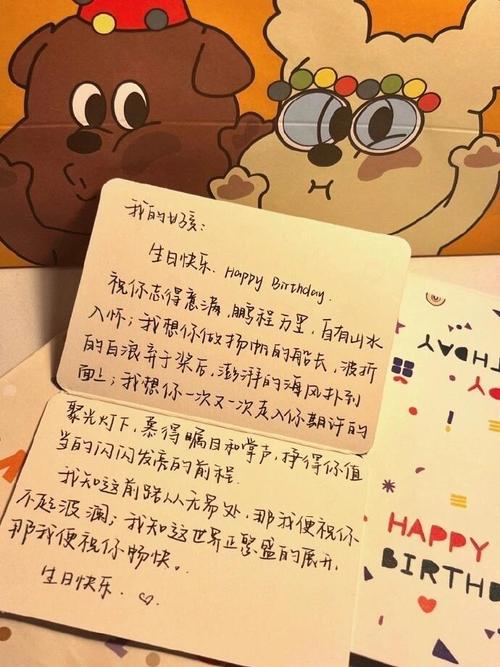 我的女孩：
生日快乐. Happy Birthday.
祝你志得意满，鹏程万里，自有山水
入怀；我想你做扬帆的船长，波折
的白浪弃于桨后，澎湃的海风扑到
面上；我想你一次又一次走入你期许的
聚光灯下，赢得瞩目和掌声，挣得你值
当的闪闪发亮的前程.
我知这前路从无易处，那我便祝你
不起波澜；我知这世界正繁盛的展开，
那我便祝你畅快。
生日快乐. ♡
HAPPY
BIRTHDAY